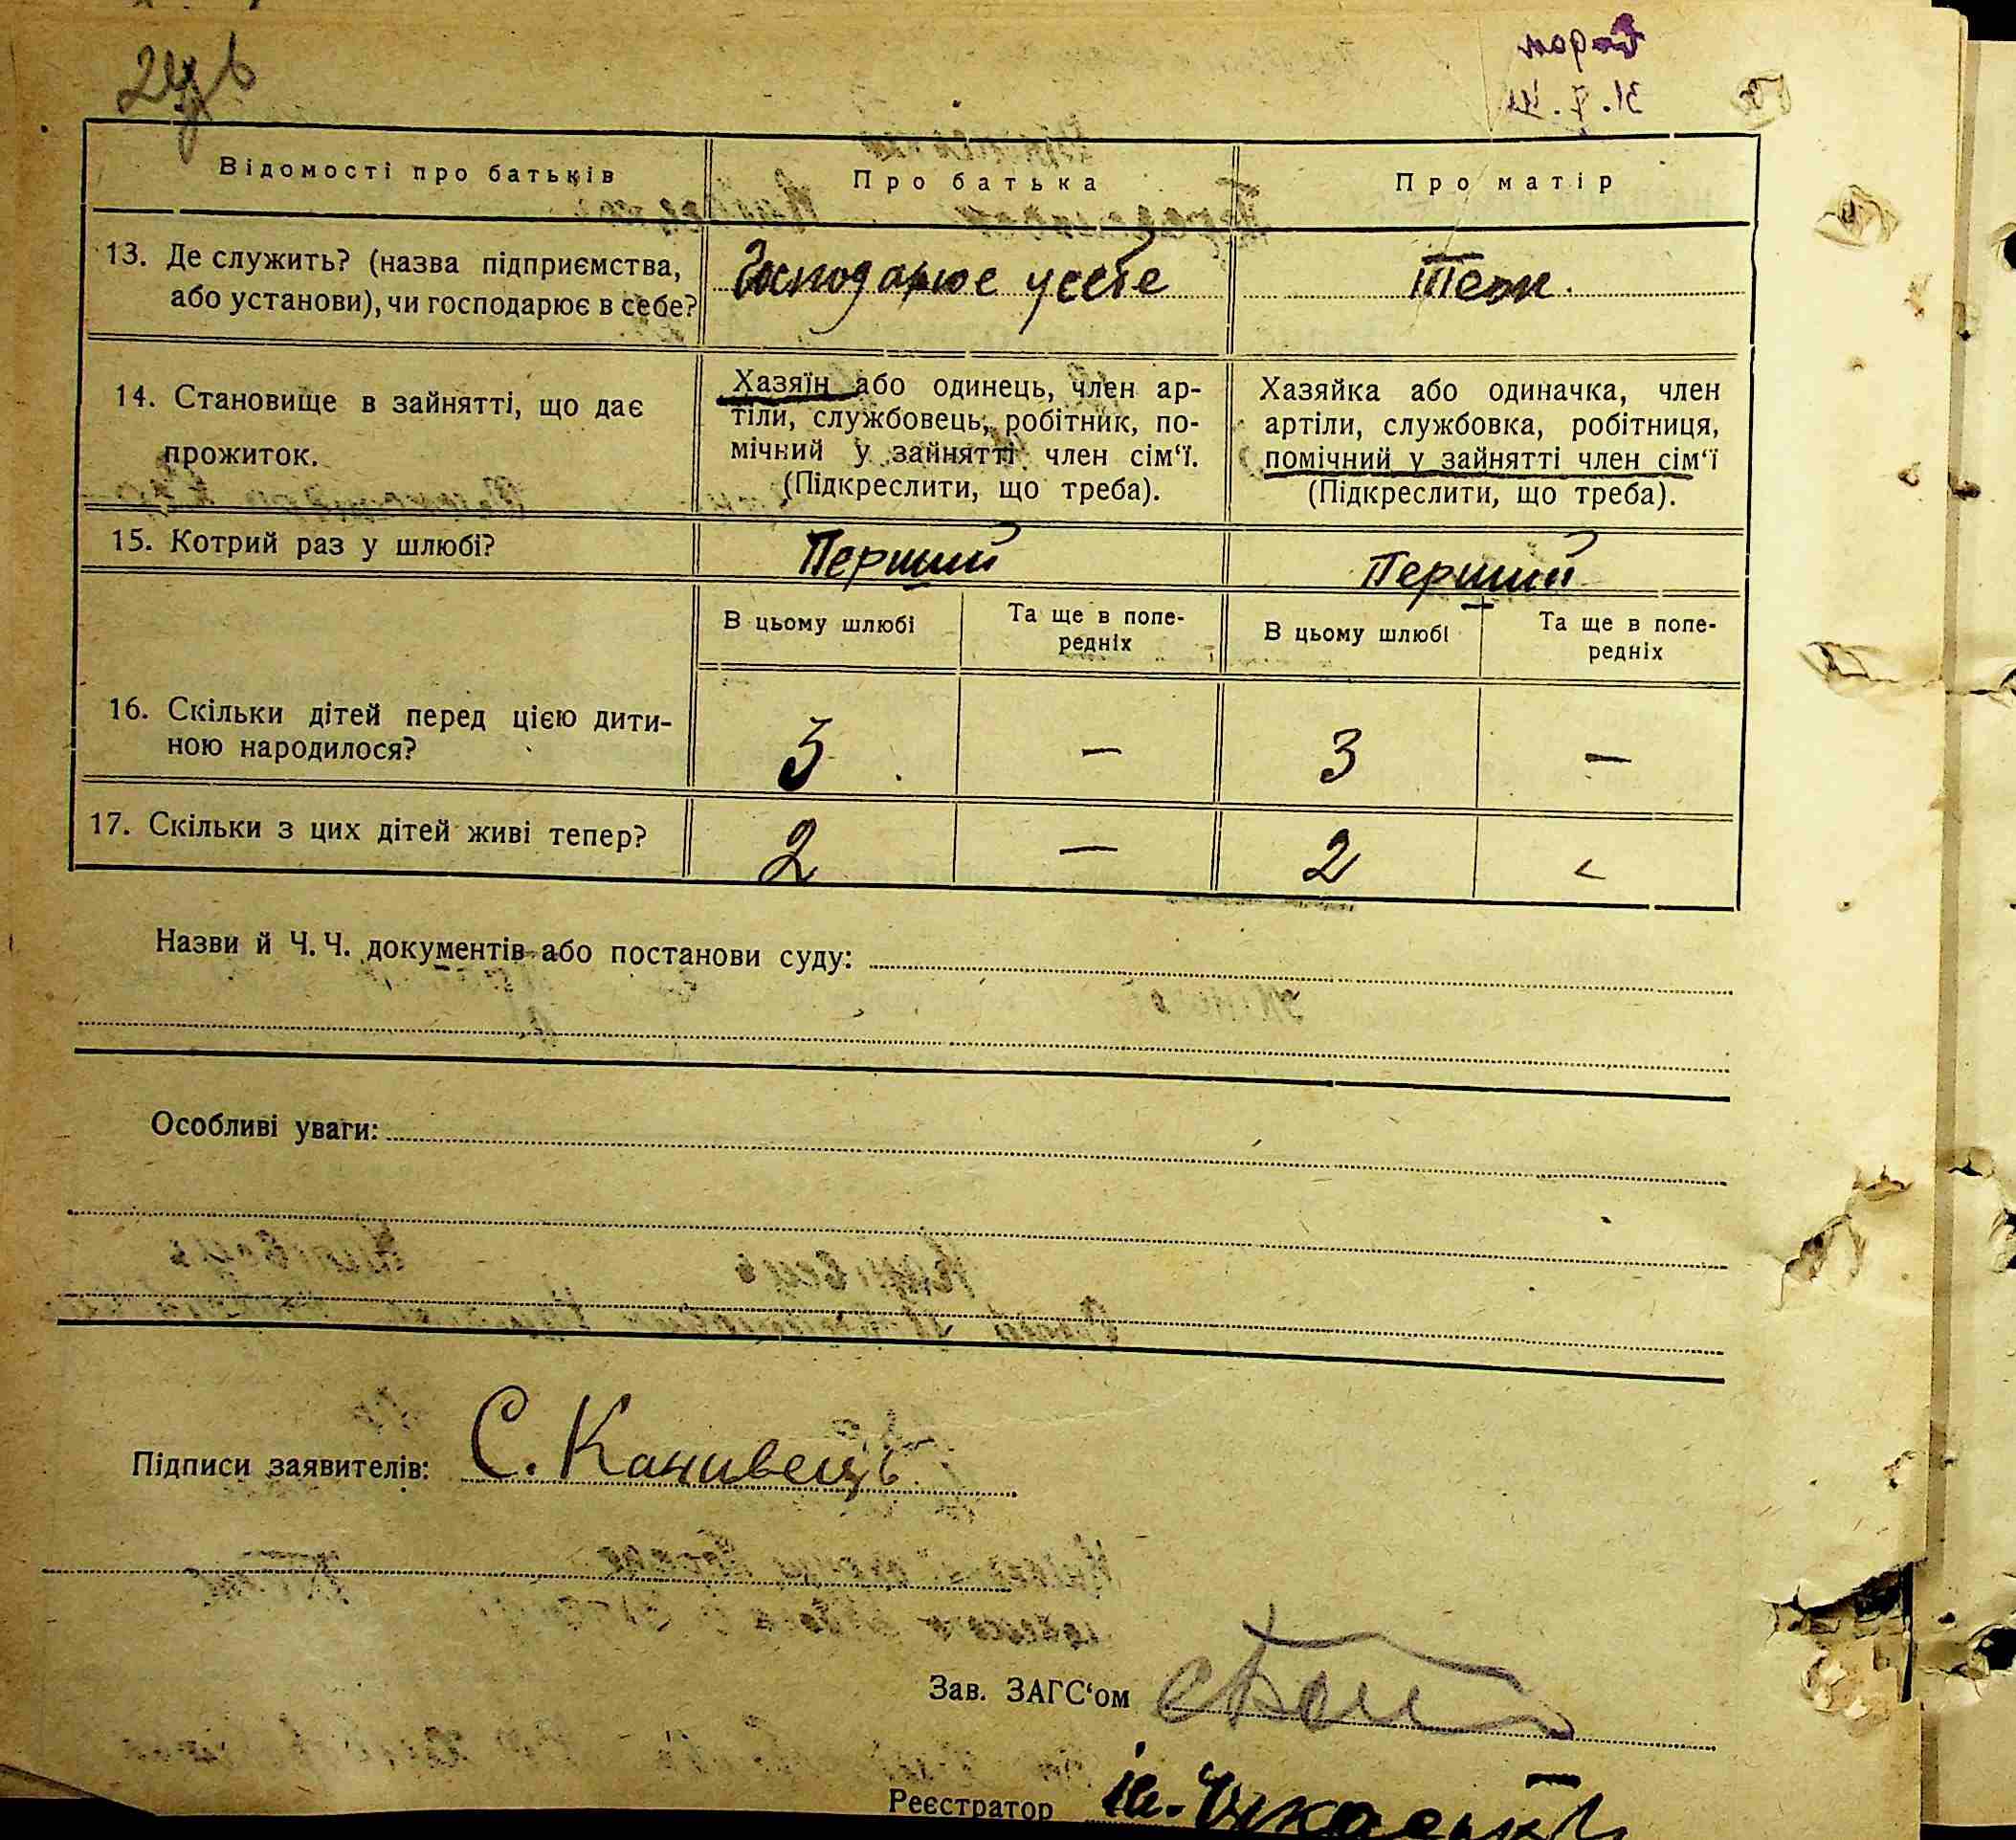 Відомості про батьків
Про батька
Про матір
13. Де служить? (назва підприємства, або установи), чи господарює в себе?
Господарює у себе
Теж.
14. Становище в зайнятті, що дає прожиток.
Хазяїн або одинець, член ар-
тіли, службовець, робітник, по-
мічний у зайнятті член сім‘ї.
(Підкреслити, що треба).
Хазяйка або одиначка, член
артіли, службовка, робітниця,
помічний у зайнятті член сім‘ї
(Підкреслити, що треба).
15. Котрий раз у шлюбі?
Перший
Перший
В цьому шлюбі
Та ще в попе-
редніх
В цьому шлюбі
Та ще в попе-
редніх
16. Скільки дітей перед цією дити-
ною народилося?
3
—
3
—
17. Скільки з цих дітей живі тепер?
2
—
2
Назви й Ч. Ч. документів або постанови суду:
Особливі уваги:
Підписи заявителів: С. Канивець
Зав. ЗАГС‘ом
Реєстратор